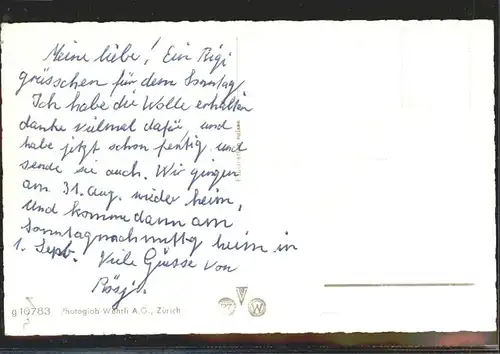 Meine liebe! Ein Rigi
grüsschen für dem Sonntag
Ich habe die Wolle erhalten
danke vielmal dafür, und
habe jetzt schon fertig und
sende sie auch. Wir gingen
am 31. Aug. wieder heim,
Und komme dann am
Sonntagnachmittg heim in
1. Sept. Viele Grüsse von
Rösj.
g 10783 Photoglob-Wehrli A.G., Zürich
W